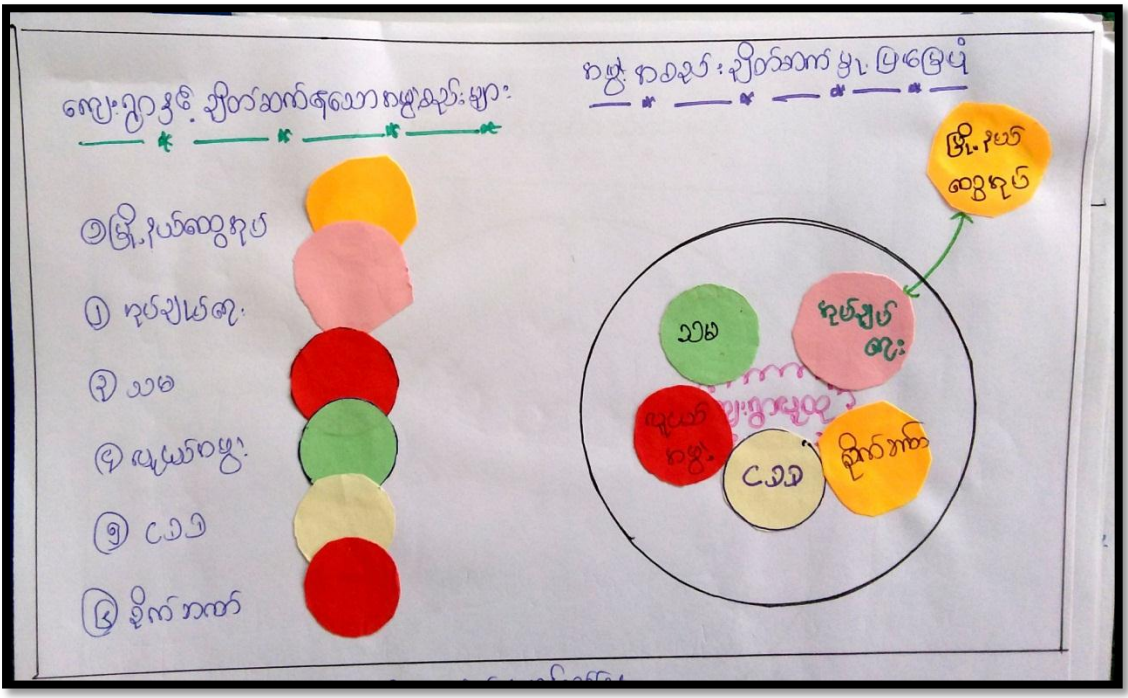 ကျေးရွာနှင့် ချိတ်ဆက်ရသောအဖွဲ့စည်းများ
① မြို့နယ်ထွေအုပ်
② အုပ်ချုပ်ရေး
③ သမ
④ လူငယ်အဖွဲ့
⑤ CDD
⑥ စိုက်ဘဏ်
အဖွဲ့အစည်းချိတ်ဆက်မှုပြမြေပုံ
မြို့နယ်
ထွေအုပ်
သမ
အုပ်ချုပ်
ရေး
ကျေးရွာလူထု
လူငယ်
အဖွဲ့
CDD
စိုက်ဘဏ်